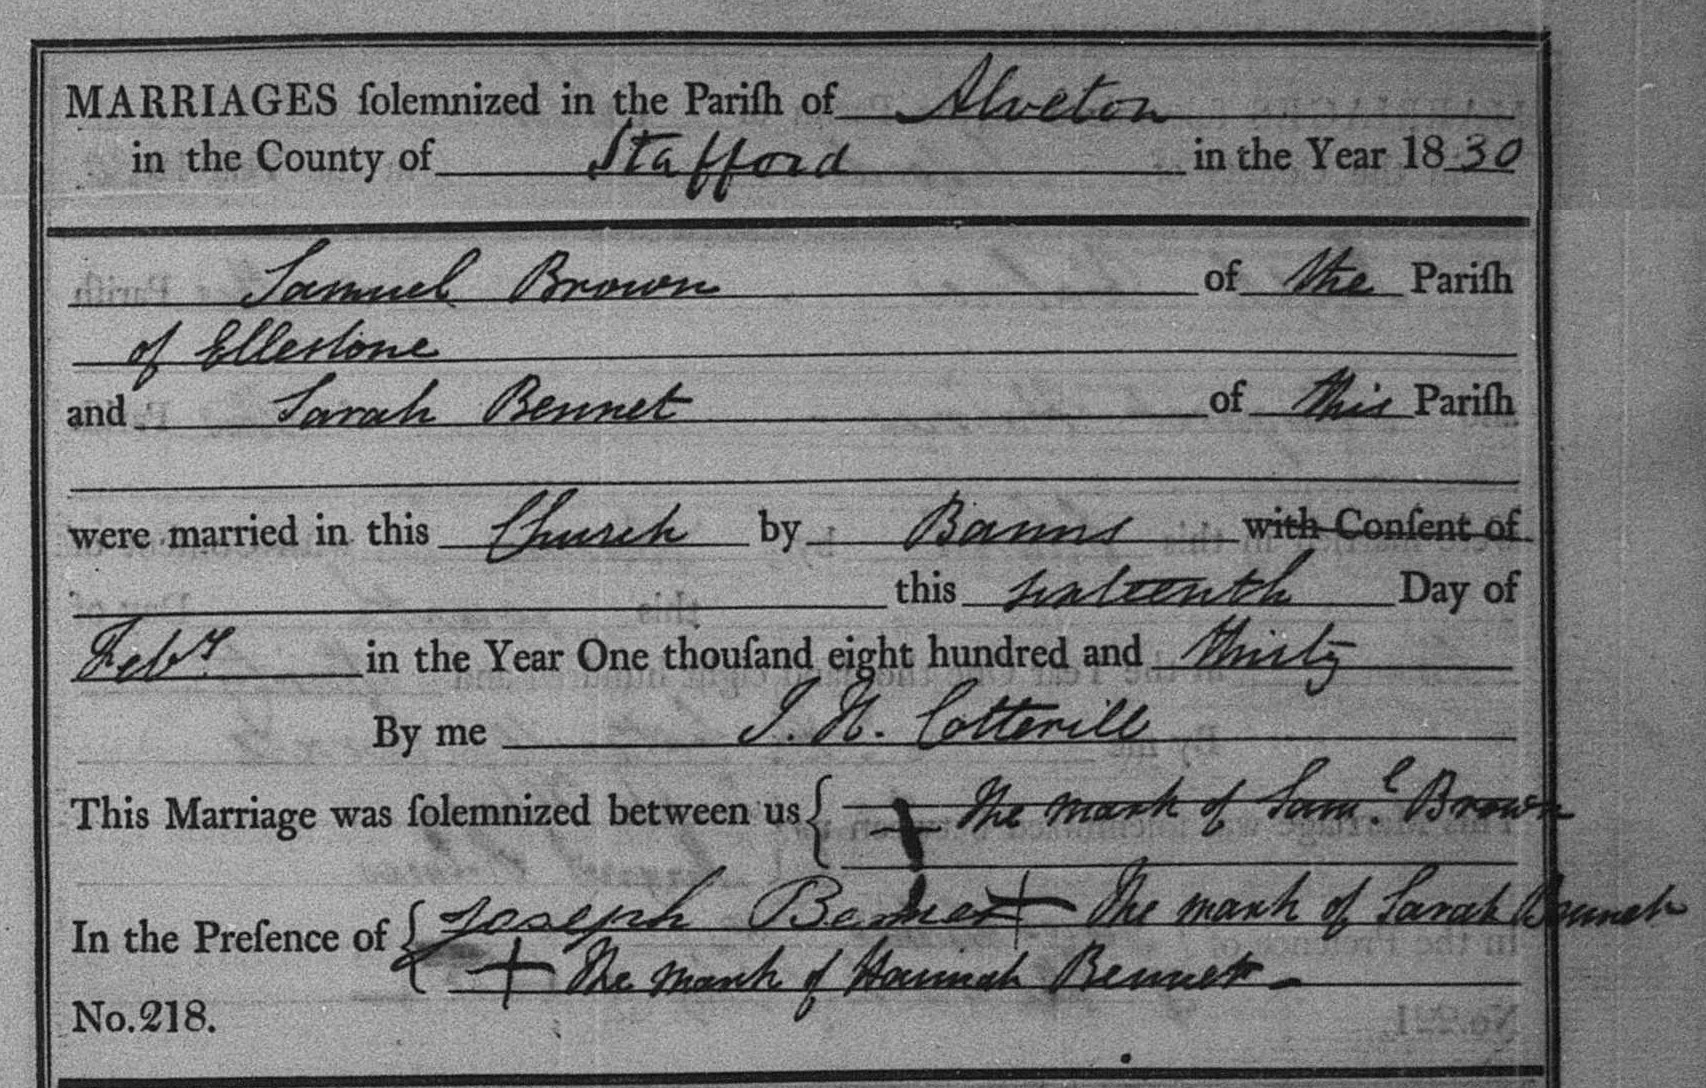 MARRIAGES ſolemnized in the Pariſh of Alveton
in the County of Stafford in the Year 1830
Samuel Brown of the Pariſh
of Ellestone
and Sarah Bennet of this Pariſh
were married in this Church by Banns with Conſent of
this sixteenth Day of
Febʸ in the Year One thouſand eight hundred and thirty
By me J. H. Cotterill
This Marriage was ſolemnized between us { + The mark of Samˡ. Brown
In the Preſence of { Joseph Bennet + The mark of Sarah Bennet
+ The mark of Hannah Bennet
No. 218.